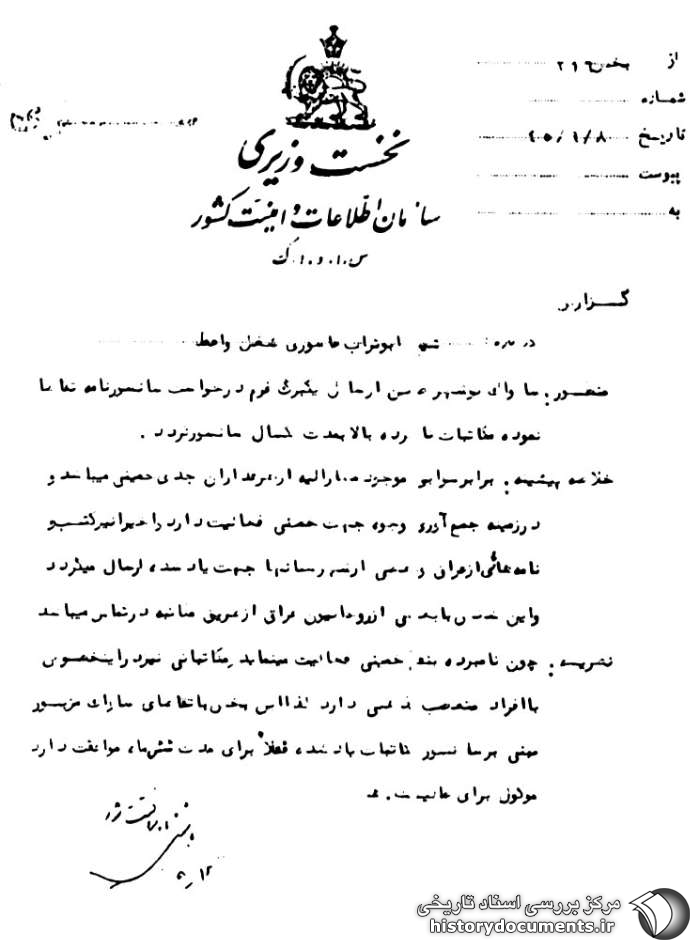 از بخش ۲۱۶
شماره
تاریخ ۴۵/۱/۸
پیوست
به
نخست وزیری
سازمان اطلاعات و امنیت کشور
س.ا.و.ا.ک
گزارش
درباره: ابوتراب عاشوری شغل واعظ
منظور: ساواک بوشهر ضمن ارسال یکبرگ فرم درخواست سانسور نامه تقاضا
نموده مکاتبات نامبرده بالا بمدت یکسال سانسور گردد.
خلاصه پیشینه: برابر سوابق موجود مشارالیه از طرفداران جدی خمینی میباشد و
در زمینه جمع آوری وجوه جهت خمینی فعالیت دارد و اخیرا نیز کتب و
نامه‌هائی از عراق و جهت یاد شده ارسال میگردد
و این شخص با روحانیون عراقی از طریق مکاتبه در تماس میباشد
نظریه: چون نامبرده بنفع خمینی فعالیت مینماید و مکاتباتی نیز در اینخصوص
با افراد متعصب مذهبی دارد لذا این بخش با تقاضای ساواک مزبور
مبنی بر سانسور مکاتبات یاد شده فعلاً برای مدت ششماه موافقت دارد
موکول برای عالیست.
مرکز بررسی اسناد تاریخی
historydocuments.ir